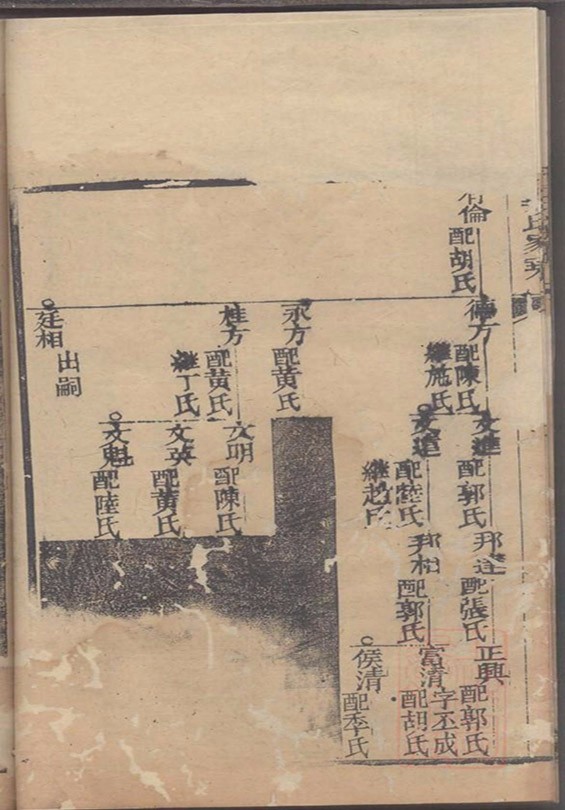 倫
配胡氏
德方
配陳氏
繼施氏
文進
配郭氏
邦達
配張氏
正興
配郭氏
配陸氏
繼趙氏
邦相
配郭氏
富清
字丕成
配胡氏
侯清
配李氏
永方
配黃氏
桂方
配黃氏
繼丁氏
文明
配陳氏
文英
配黃氏
文魁
配陸氏
廷相
出嗣
氏家